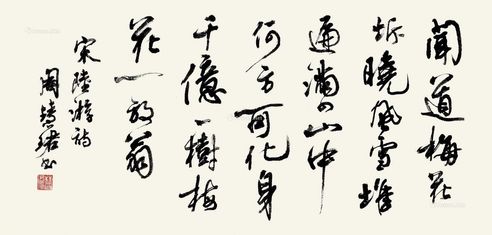 聞道梅花
坼曉風雪堆
遍滿四山中
何方可化身
千億一樹梅
花一放翁
宋陸游詩
陶